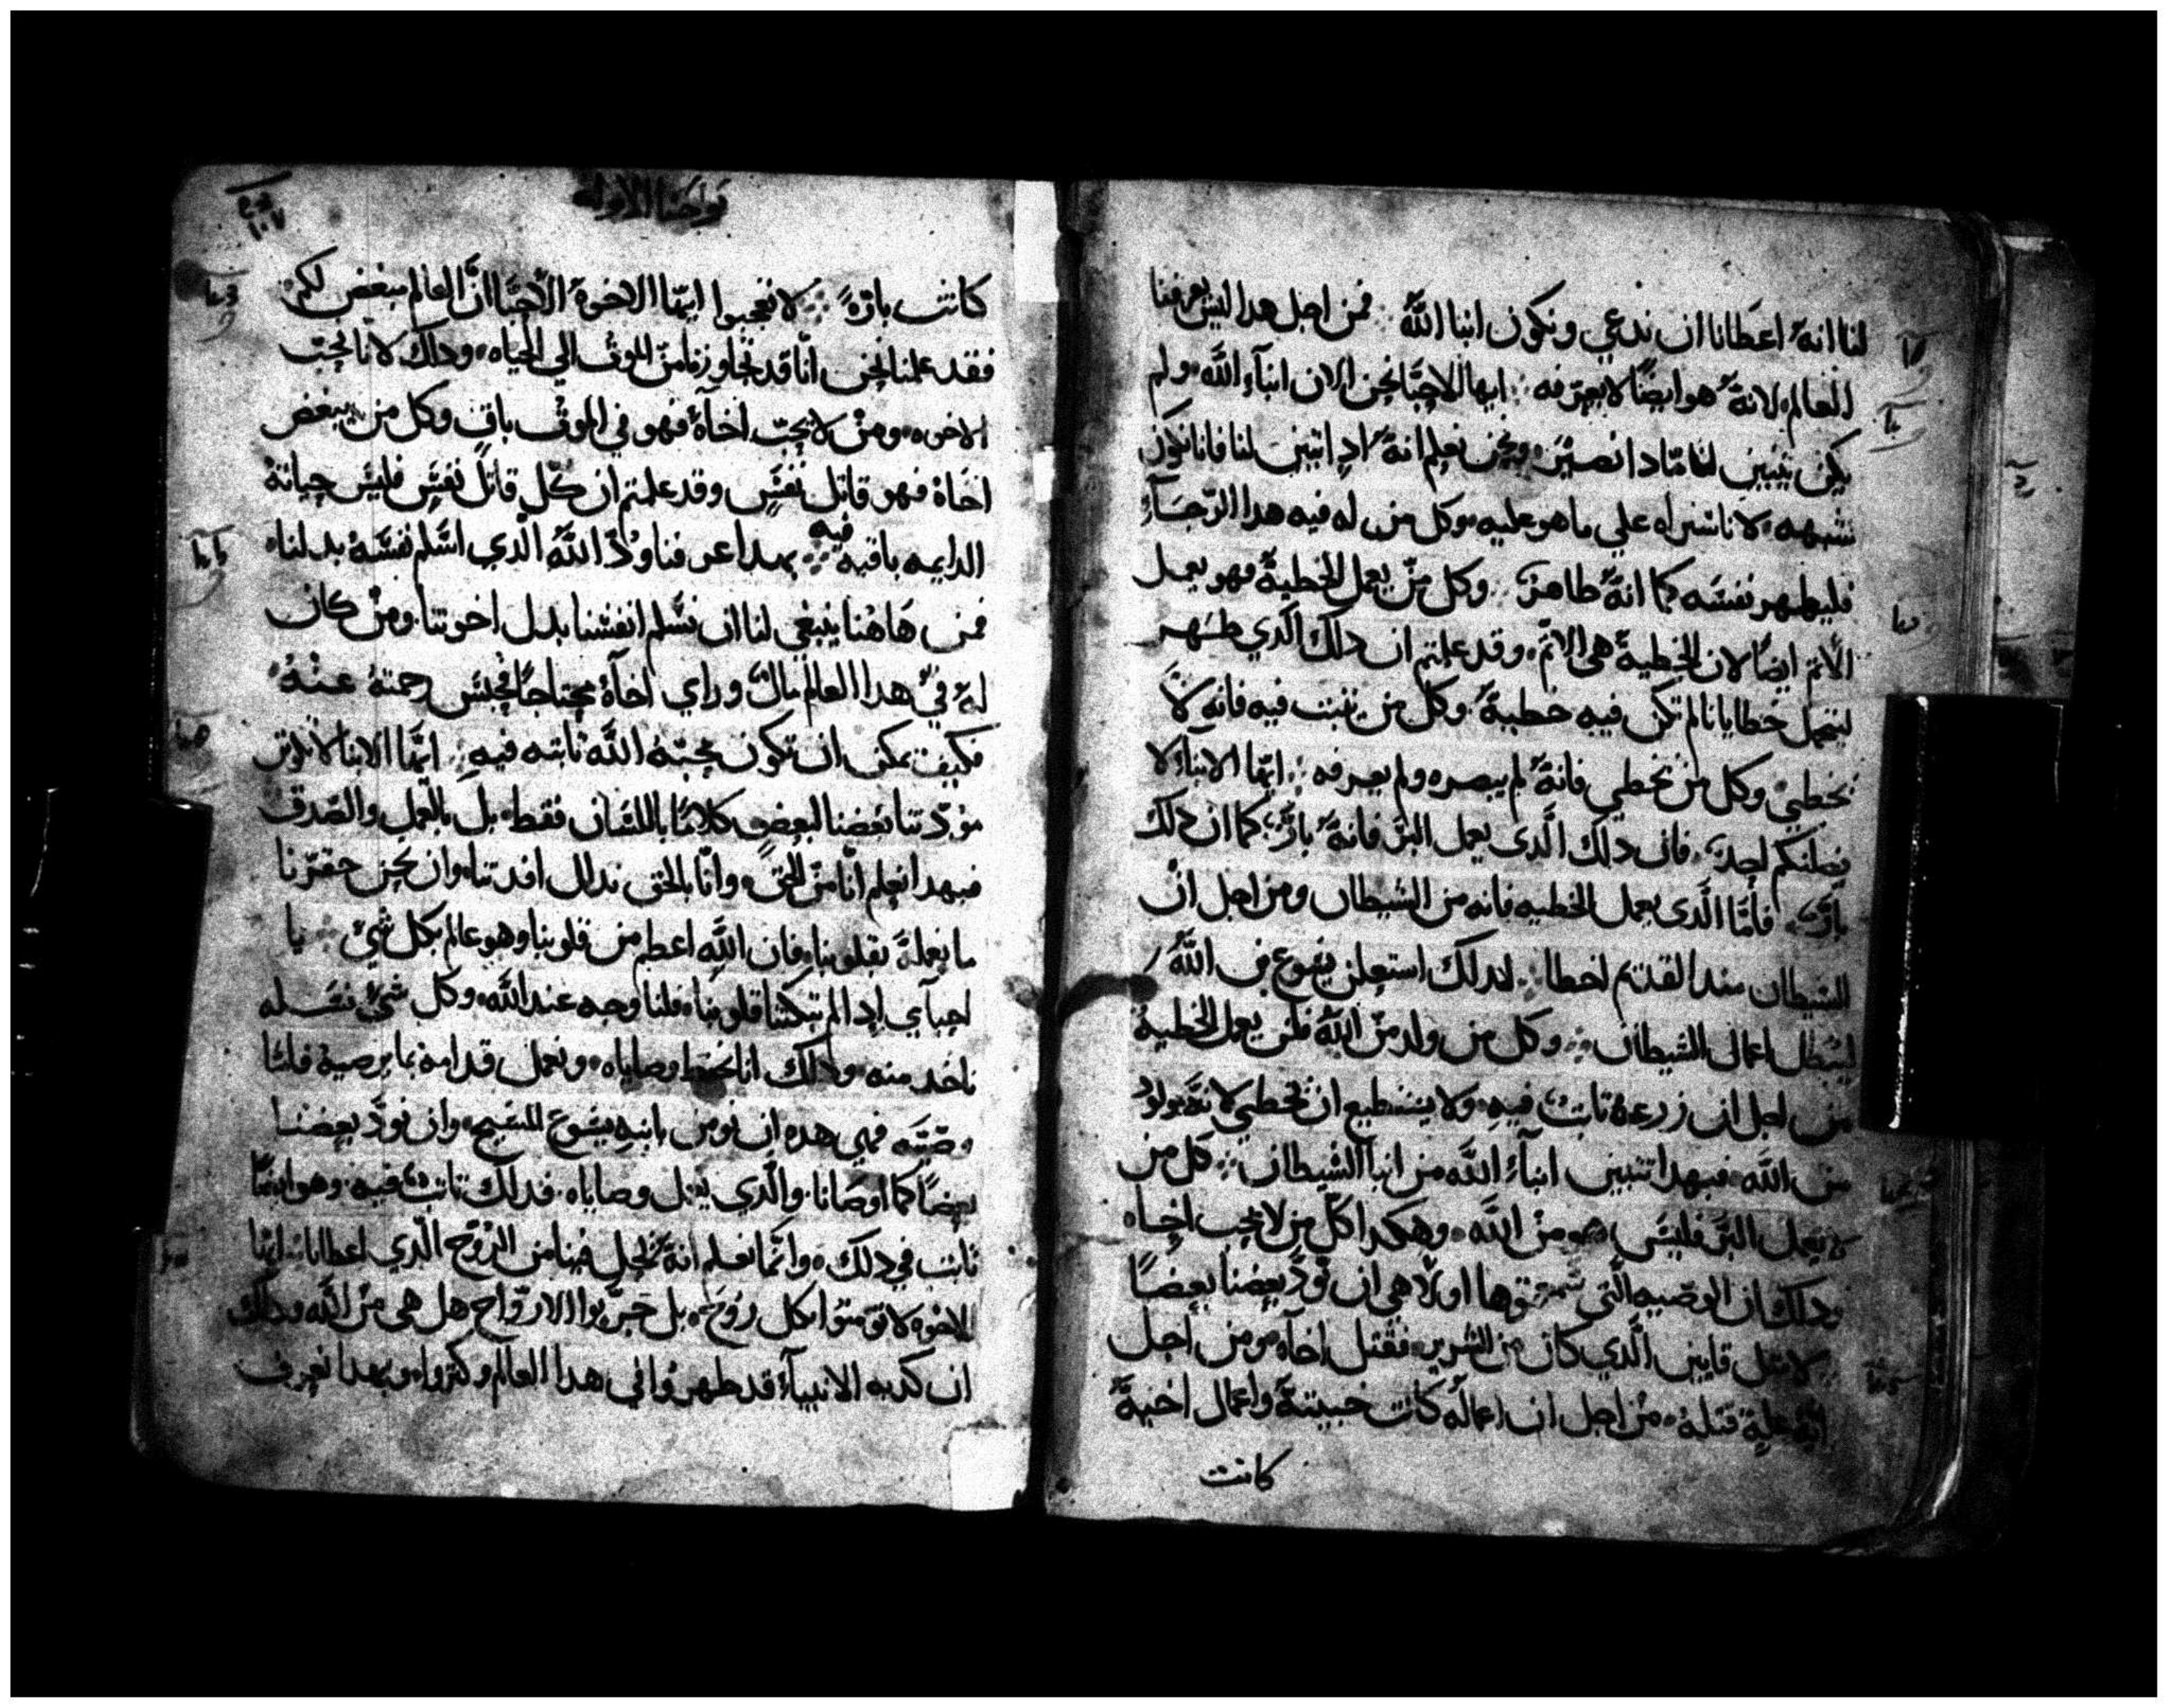 لنا انهُ اعطانا ان ندعي ونكون ابنا اللَّهُ فمن اجل هدا ليس يعرفنا
العالم لانهُ هو ايضًا لا يعرفه ايها الاحبَّا نحن الان ابنآء اللَّه ولم
يكن يتبين لنا مادا نصيرَ ونحن نعلم انهُ ادا تبينَ لنا فانا نكون
شبهه لانا سنراه علي ما هو عليه وكل من له فيه هدا الرّجآء
فليطهر نفسَه كما انهُ طاهر وكل منْ يعمل الخطيةُ فهو يعمل
الأتم ايضًا لان الخطيةُ هي الاتم وقد علمتم ان دلك الَّدي ظهر
ليتحمل خطايانا لم تكن فيه خطيةُ وكل من يتبت فيه فانه لاَ
يخطيْ وكل من يخطي فانهُ لم يبصره ولم يعرفه ايّها الابنآء لا
يضلنكم احدٌ فان دلك الَّدي يعمل البرّ فانهُ بارٌّ كما ان دلك
بارٌّ فأمّا الَّدي يعمل الخطيه فانه من الشيطان ومن اجل انْ
الشيطان مند القديم اخطا لدلك استعلن يسوع بن اللَّهُ
ليبُطل اعمال الشيطان وكل من ولد منْ اللَّهُ فلن يعمل الخطيهُ
من اجل ان زرعهُ تابت فيهِ ولا يستطيع ان يخطي لانَّهُ مولودٌ
من اللَّه فبهدا تتبين ابنآء اللَّه من ابنا الشيطان كل من
لا يعمل البرّ فليسَ هو منْ اللَّه وهكدا كلّ من لا يحب اخاه
ودلك ان الوصّيه الَّتي سَمعتوها اولًا هي ان نودّ بعضنا بعضًا
لا مثل قايين الَّدي كان من الشرير فقتل اخآه ومن اجل
ايَّة علةٍ قتلهُ منْ اجل ان اعمالهُ كانت خبيتهً واعمال اخيهُ
كانت
يوحَنا الاولة
١٠٧
كانتْ بارّهً لا تعجبوا ايّها الاخوهَ الأحبَّا انَّ العالم يبغض لكم
فقد علمنا نحن انّا قد تجاوزنا منَ الموتْ الي الحياه ودلك لانا نحبّ
الاخوه ومنْ لا يحبّ اخآهُ فهو في الموتْ باقٍ وكل من يبغض
اخاهُ فهو قاتل نفسٍ وقد علمتم ان كلّ قاتل نفسٍ فليسَ حياتهُ
الدايمه باقيه فيه بهدا عرفنا ودَّ اللَّهُ الَّدي اسَّلم نفسَهُ بدلنا
فمن هَاهُنا ينبغي لنا ان نسَّلم انفسنا بدل اخوتنا ومنْ كان
لهُ فيْ هدا العالم مالٌ وراي اخآهُ محتاجًا فحبسَ رحمتهُ عنْهُ
فكيف يمكن ان تكون محبَّة اللَّه تابته فيهِ ايّها الابنا لا تكون
مودّتنا بعضنا لبعضٍ كلامًا باللسَّان فقط بل بالعمل والصّدق
فبهدا نعلم انّا منْ الحق وانّا بالحق ندلل افدتنا وان نحن حقرّنا
ما نعلهُ بقلوبنا فان اللَّه اعظم من قلوبنا وهو عالم بكل شيْ يا
احبآي إدا لم تبكتنا قلوبنا فلنا وجه عند اللَّه وكل شيْ نسَله
ناخد منه ودلك انا نحفظ وصاياه ونعمل قدامهُ بما يرضيهْ فامّا
وصّيته فهي هده ان نومن بابنهِ يسَوعَ المسَيح وان نودَّ بعضنا
بعضًا كما اوصَانا والَّدي يقبل وصاياه فدلك تابتٌ فيه وهو ايضًا
تابت في دلك وانمّا نعلم انهُ يحل فينا من الرّوْح الَّدي اعطانا ايّها
الاخوه لا تومنوا بكل رُوح بل جرّبوا الارواح هل هي منْ اللَّه ودلك
ان كدبه الانبيآء قد ظهروا في هدا العالم وكتروا وبهدا نعرف